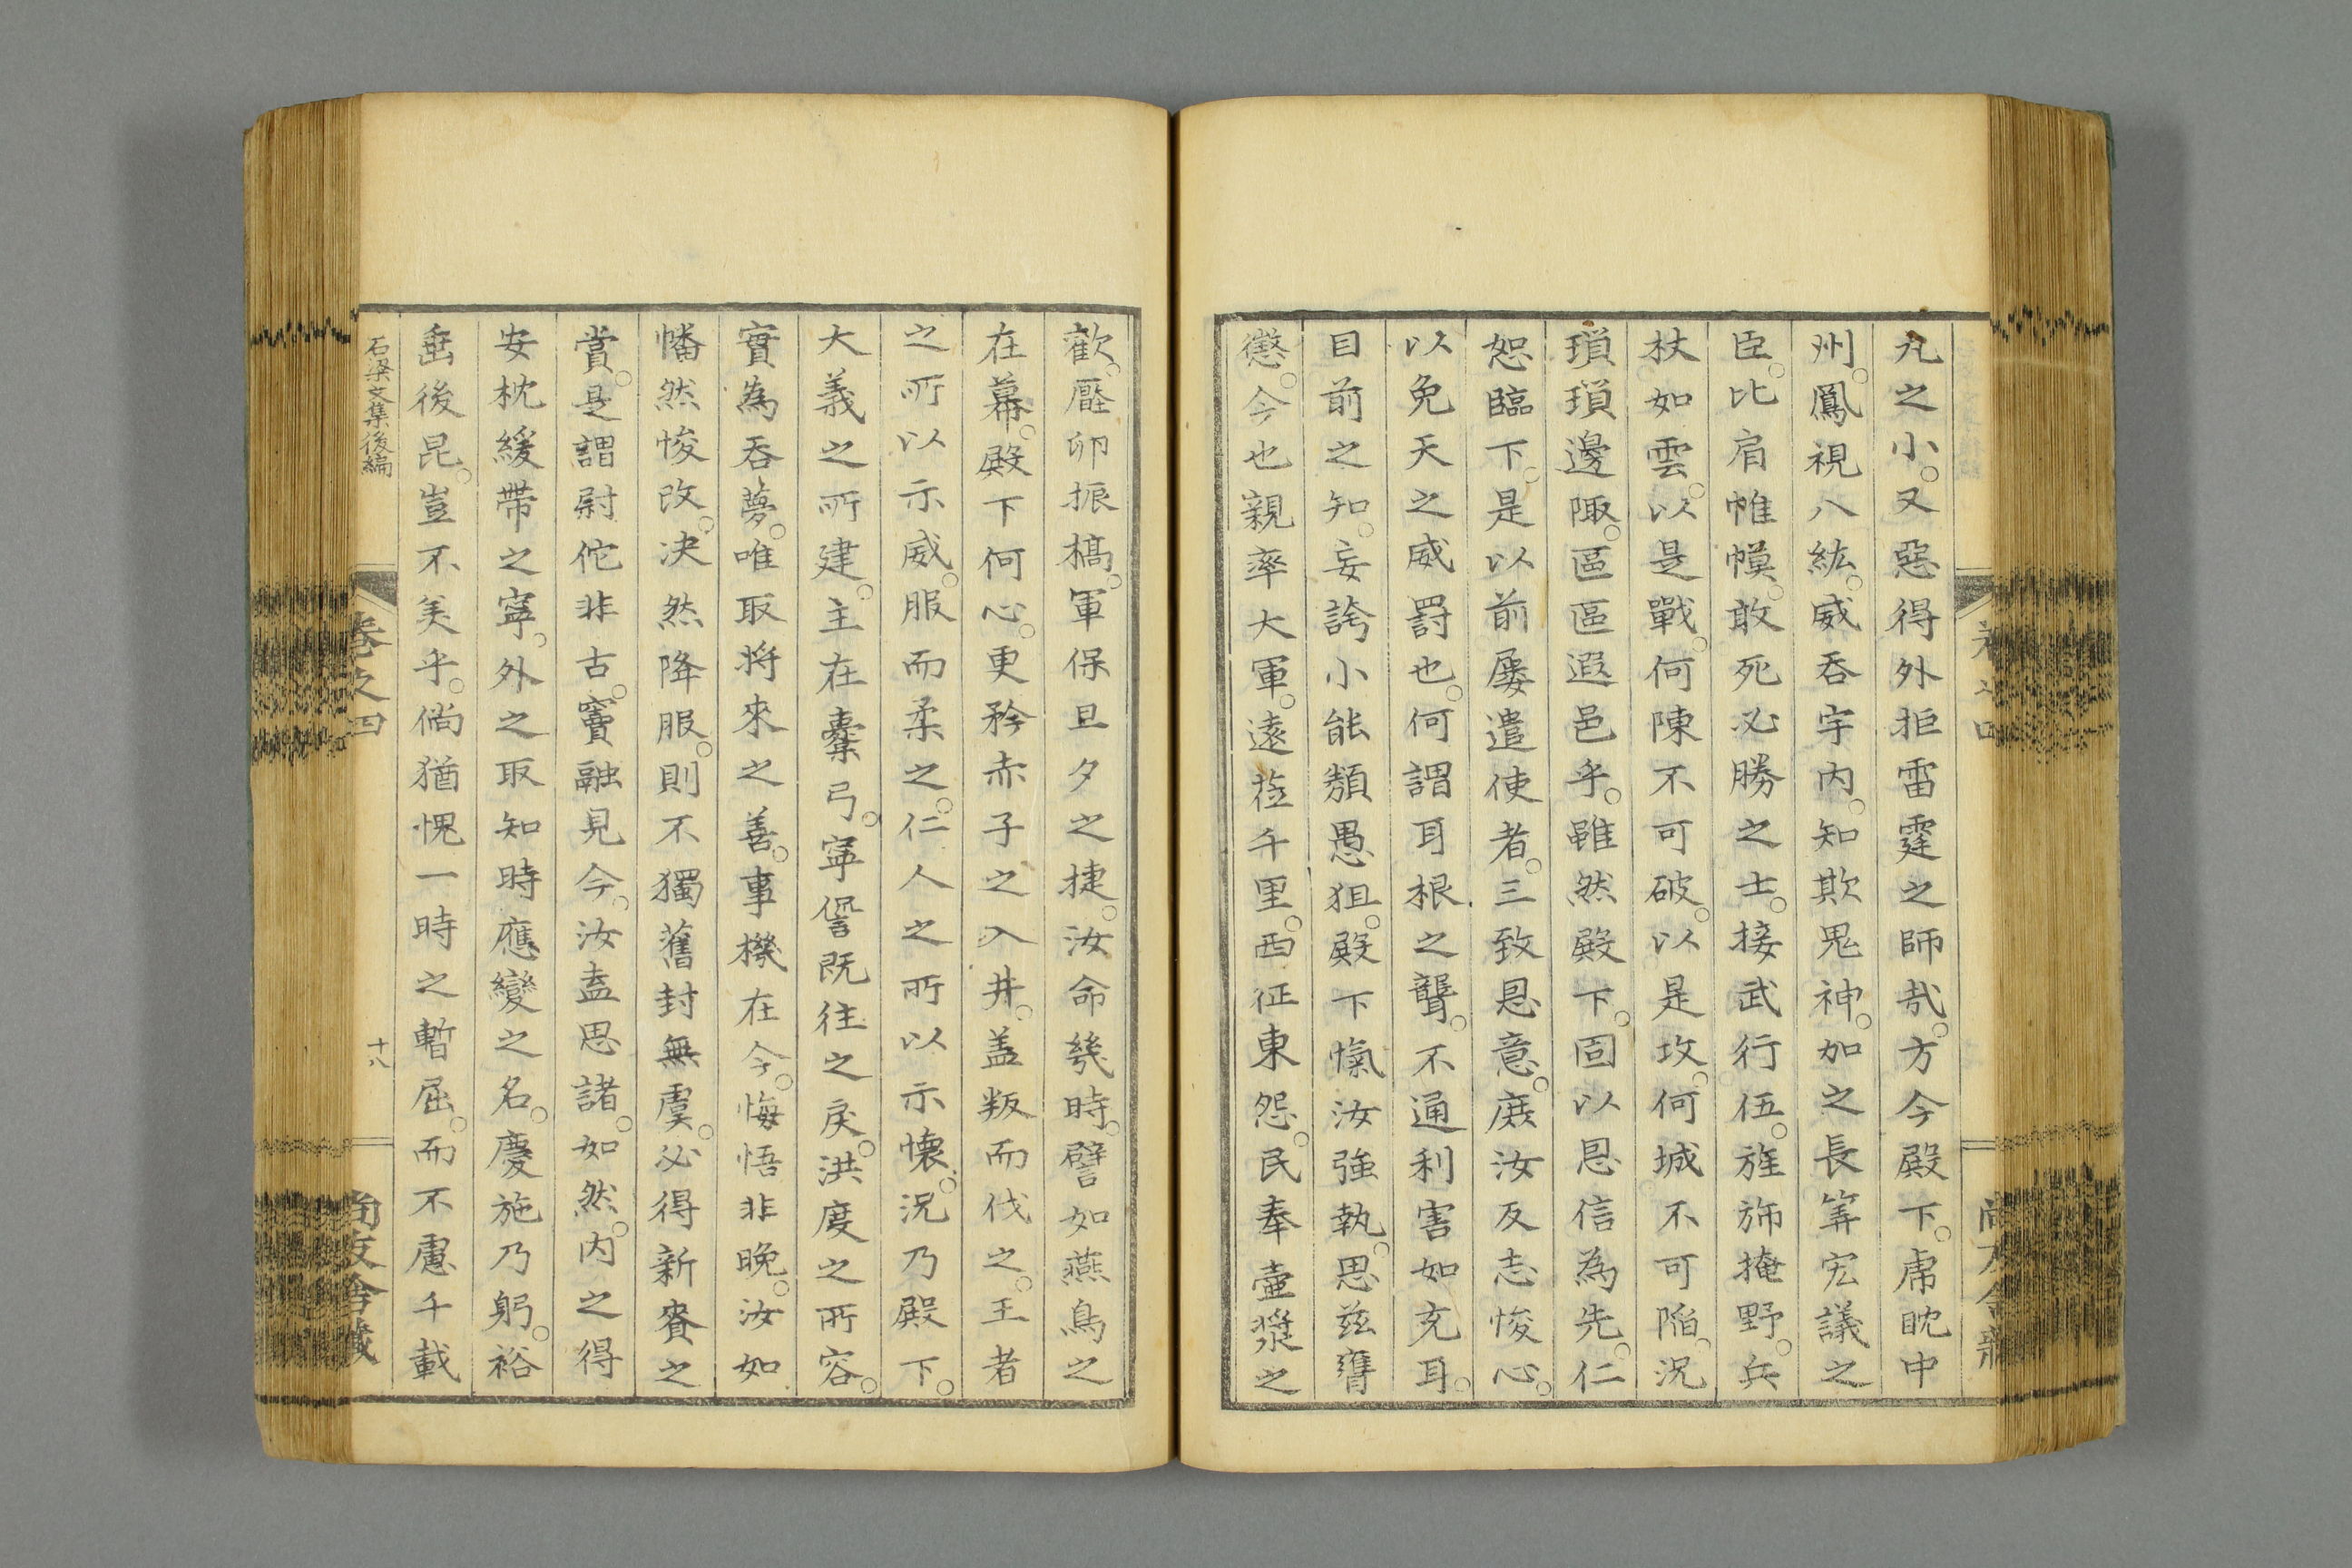 丸之小。又惡得外拒雷霆之師哉。方今殿下。虎眈中
州。鳳視八紘。威吞宇內。知欺鬼神。加之長筭宏議之
臣。比肩帷幙。敢死必勝之士。接武行伍。旌斾掩野。兵
杖如雲。以是戰。何陳不可破。以是攻。何城不可陷。況
瑣瑣邊陬。區區遐邑乎。雖然殿下。固以恩信為先。仁
恕臨下。是以前屢遣使者。三致恩意。庶汝反志悛心。
以免天之威罸也。何謂耳根之聾。不通利害如充耳。
目前之知。妄誇小能類愚狙。殿下愾汝強執。思茲朁
懲。今也親率大軍。遠莅千里。西征東怨。民奉壺漿之
歡。壓卵振槁。軍保旦夕之捷。汝命幾時。譬如燕鳥之
在幕。殿下何心。更矜赤子之入井。盖叛而伐之。王者
之所以示威。服而柔之。仁人之所以示懷。況乃殿下。
大義之所建。主在櫜弓。寧讐既往之戾。洪度之所容。
實為吞夢。唯取將來之善。事機在今。悔悟非晚。汝如
幡然悛改。決然降服。則不獨舊封無虞。必得新賚之
賞。是謂尉佗非古。竇融見今。汝盍思諸。如然。內之得
安枕緩帶之寧。外之取知時應變之名。慶施乃躬。裕
垂後昆。豈不美乎。倘猶愧一時之暫屈。而不慮千載
石梁文集後編
卷之四
十八